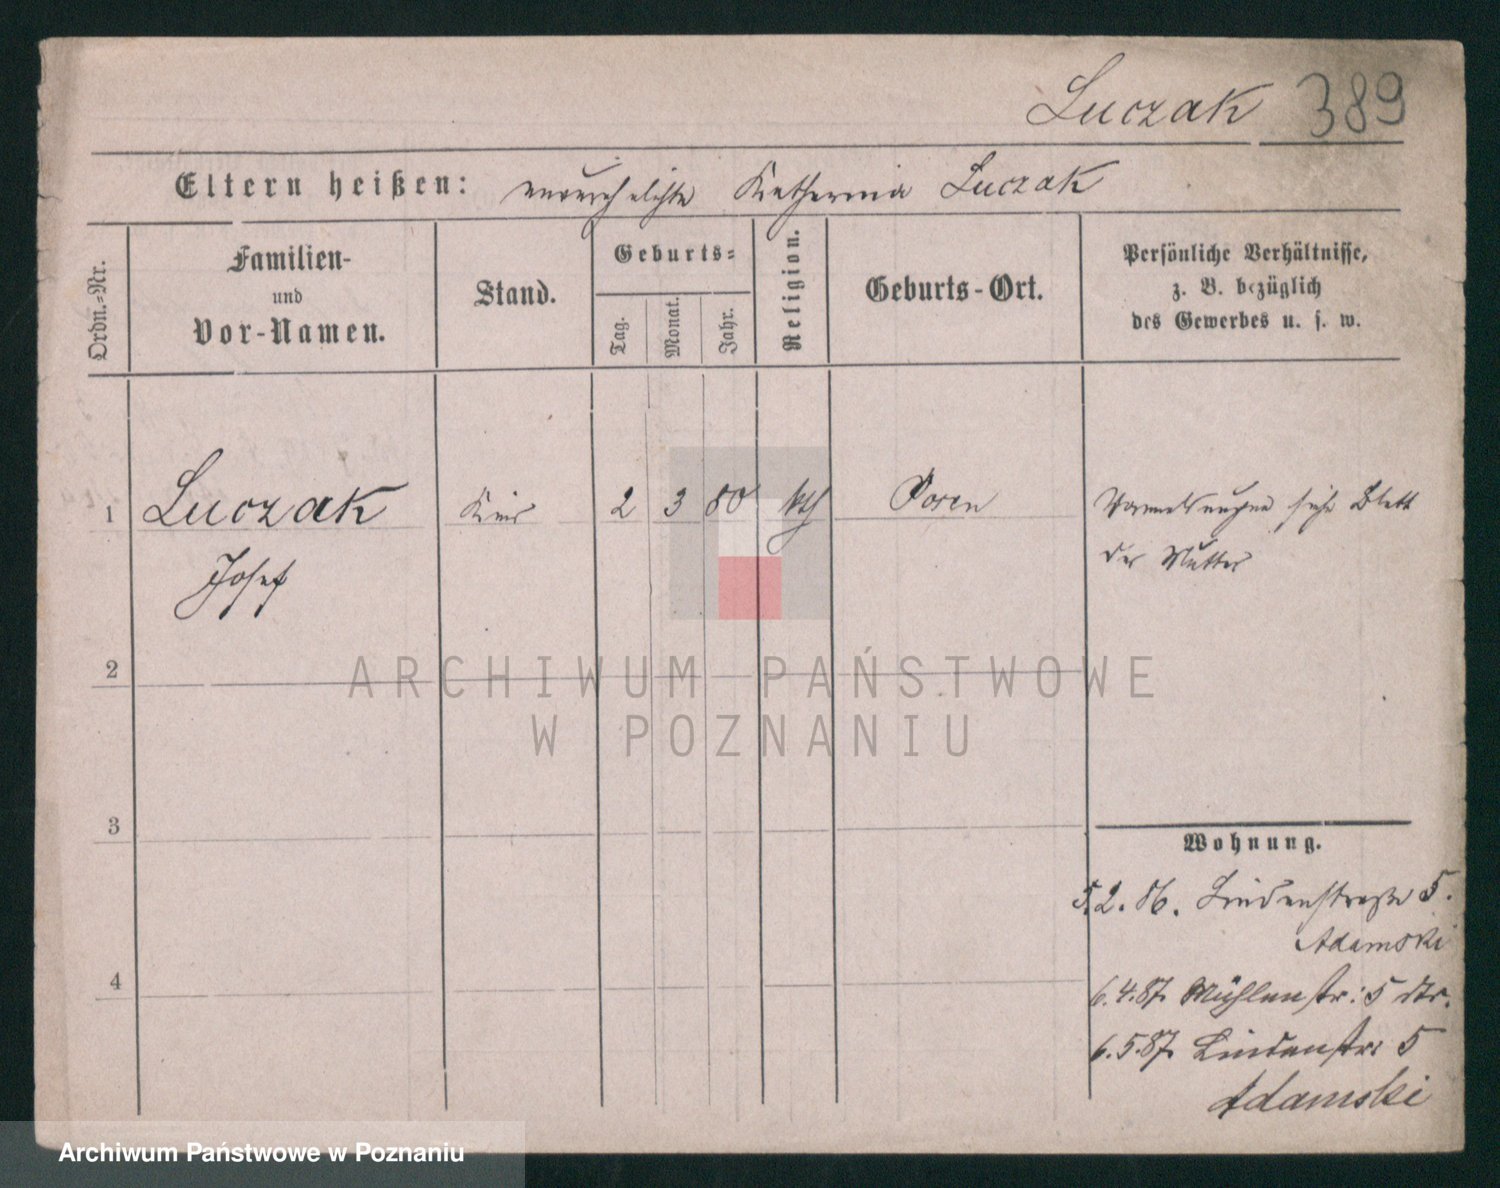 Luczak 389
Eltern heißen: unverehelichte Katharina Luczak
Ordn.-Nr.
Familien-
und
Vor-Namen.
Stand.
Geburts-
Tag.
Monat.
Jahr.
Religion.
Geburts-Ort.
Persönliche Verhältnisse,
z. B. bezüglich
des Gewerbes u. s. w.
1 Luczak Kind 2 3 80 kth Posen siehe Blatt
Josef der Mutter
2
ARCHIWUM PAŃSTWOWE
W POZNANIU
3
Wohnung.
5.2.86. Lindenstraße 5.
Adamski
4
6.4.87. Mühlenstr: 5 dto.
6.5.87. Lindenstr: 5
Adamski
Archiwum Państwowe w Poznaniu